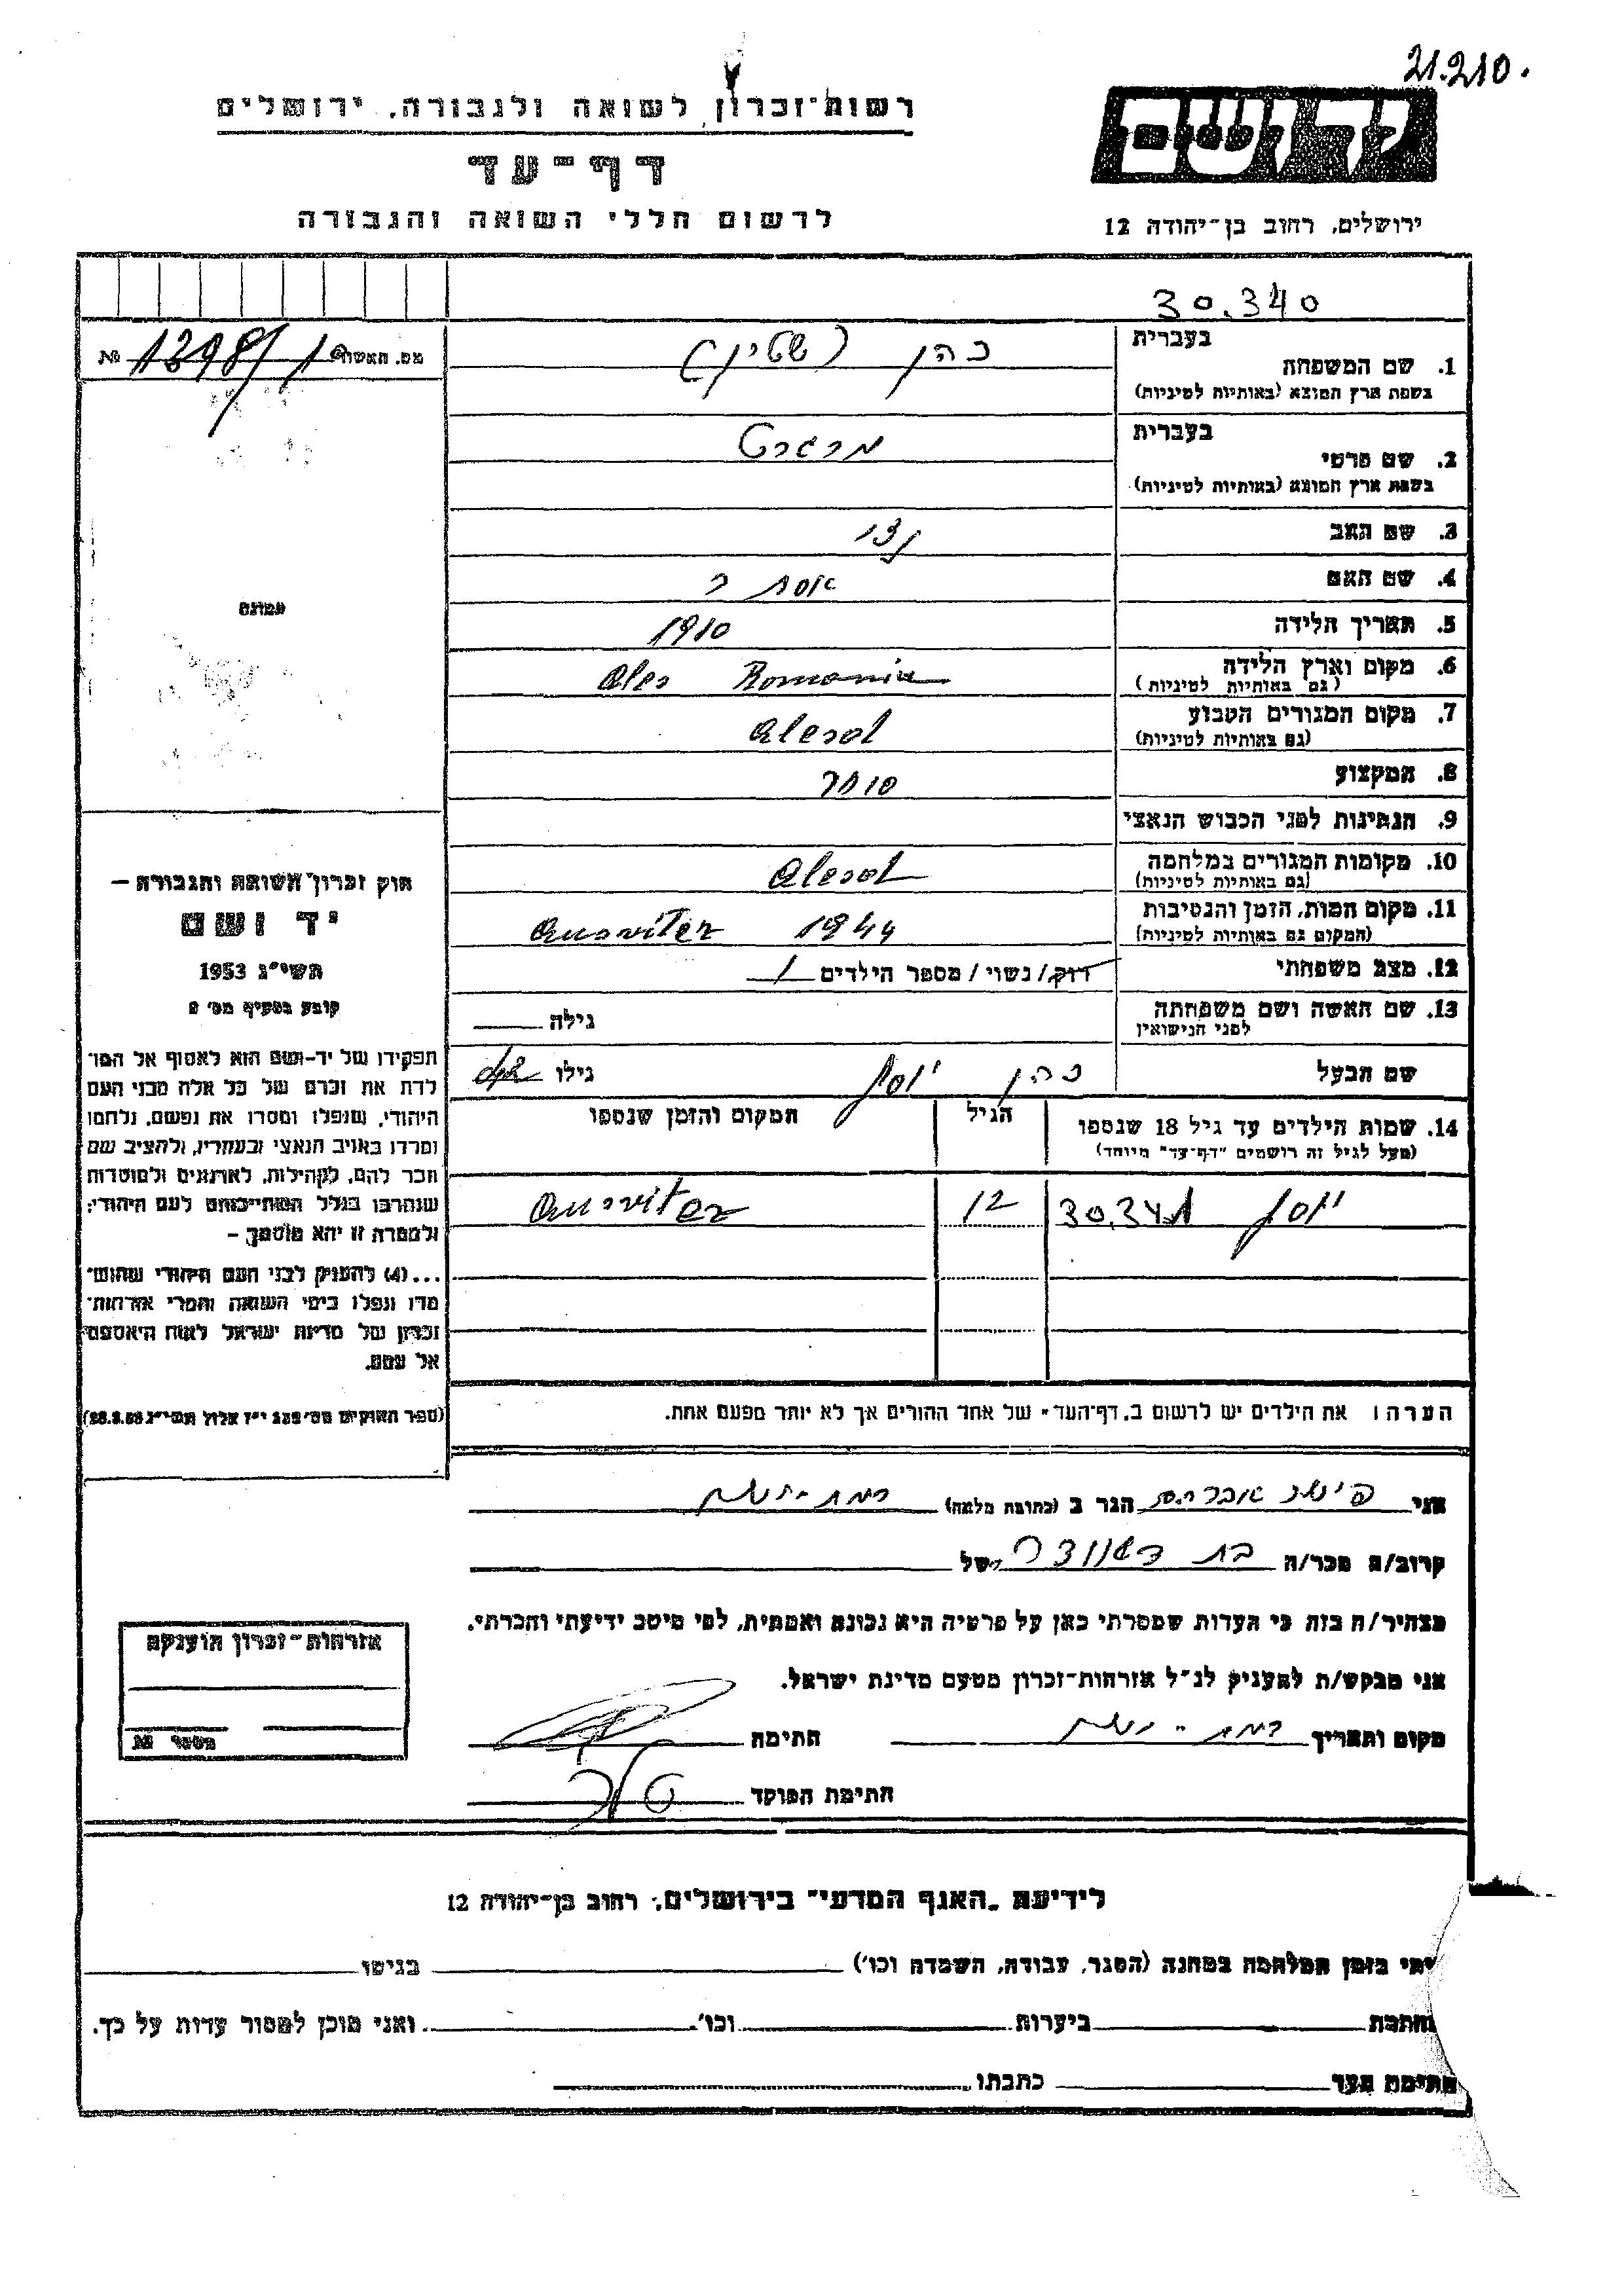 21.210.
רשות־זכרון לשואה ולגבורה, ירושלים
יד ושם
דף־עד
לרשום חללי השואה והגבורה
ירושלים, רחוב בן־יהודה 12
30.340
בעברית
1. שם המשפחה כהן (שטיין)
בשפת ארץ המוצא (באותיות לטיניות)
בעברית
2. שם פרטי מרגרט
בשפת ארץ המוצא (באותיות לטיניות)
3. שם האב
4. שם האם אסתר
5. תאריך הלידה 1910
6. מקום וארץ הלידה Ales Romania
(גם באותיות לטיניות)
7. מקום המגורים הקבוע Alesd
(גם באותיות לטיניות)
8. המקצוע סוחר
9. הנתינות לפני הכבוש הנאצי
10. מקומות המגורים במלחמה Alesd
(גם באותיות לטיניות)
11. מקום המות, הזמן והנסיבות Ausvitez 1944
(המקום גם באותיות לטיניות)
12. מצב משפחתי רווק / נשוי / מספר הילדים 1
13. שם האשה ושם משפחתה גילה
לפני הנישואין
שם הבעל כהן יוסף גילו
14. שמות הילדים עד גיל 18 שנספו הגיל המקום והזמן שנספו
(מעל לגיל זה רושמים "דף־עד" מיוחד)
יוסף 30.341 12 Ausvitez
הערה: את הילדים יש לרשום ב„דף־העד" של אחד ההורים אך לא יותר מפעם אחת.
מס. האשה № 1398/1
תמונה
חוק זכרון השואה והגבורה —
יד ושם
תשי"ג 1953
קובע בסעיף מס' 2
תפקידו של יד־ושם הוא לאסוף אל המו־
לדת את זכרם של כל אלה מבני העם
היהודי, שנפלו ומסרו את נפשם, נלחמו
ומרדו באויב הנאצי ובעוזריו, ולהציב שם
וזכר להם, לקהילות, לארגונים ולמוסדות
שנחרבו בגלל השתייכותם לעם היהודי;
ולמטרה זו יהא מוסמך —
...(4) להעניק לבני העם היהודי שהוש־
מדו ונפלו בימי השואה והמרי אזרחות־
זכרון של מדינת ישראל לאות היאספם
אל עמם.
(ספר החוקים מס' 132 י"ז אלול תשי"ג 28.8.53)
אני אברהם הגר ב (כתובת מלאה) רמת־ישי
קרוב/ה מכר/ה של
מצהיר/ה בזה כי העדות שמסרתי כאן על פרטיה היא נכונה ואמתית, לפי מיטב ידיעתי והכרתי.
אני מבקש/ת להעניק לנ"ל אזרחות־זכרון מטעם מדינת ישראל.
מקום ותאריך רמת־ישי חתימה
חתימת הפוקד
אזרחות־זכרון הוענקה
מספר №
לידיעת „האגף המדעי" בירושלים, רחוב בן־יהודה 12
יתי בזמן המלחמה במחנה (הסגר, עבודה, השמדה וכו') בגיטו
וחתרת ביערות וכו' ואני מוכן למסור עדות על כך.
חתימת העד כתבתו